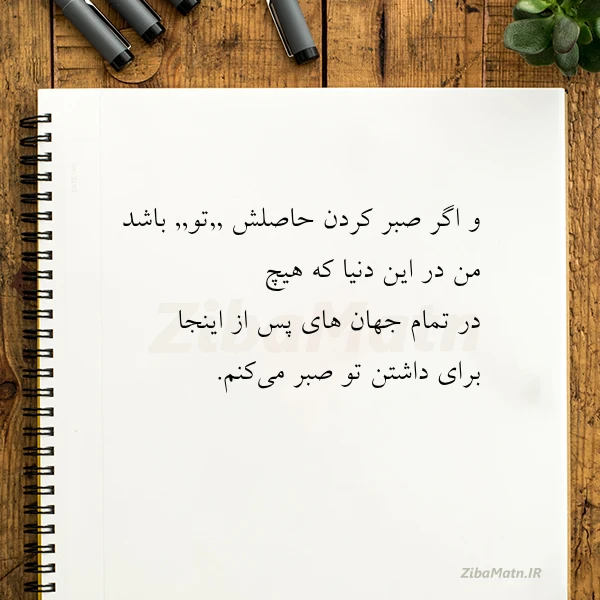 و اگر صبر کردن حاصلش ,,تو,, باشد
من در این دنیا که هیچ
در تمام جهان های پس از اینجا
برای داشتن تو صبر می‌کنم.
ZibaMatn
ZibaMatn.IR